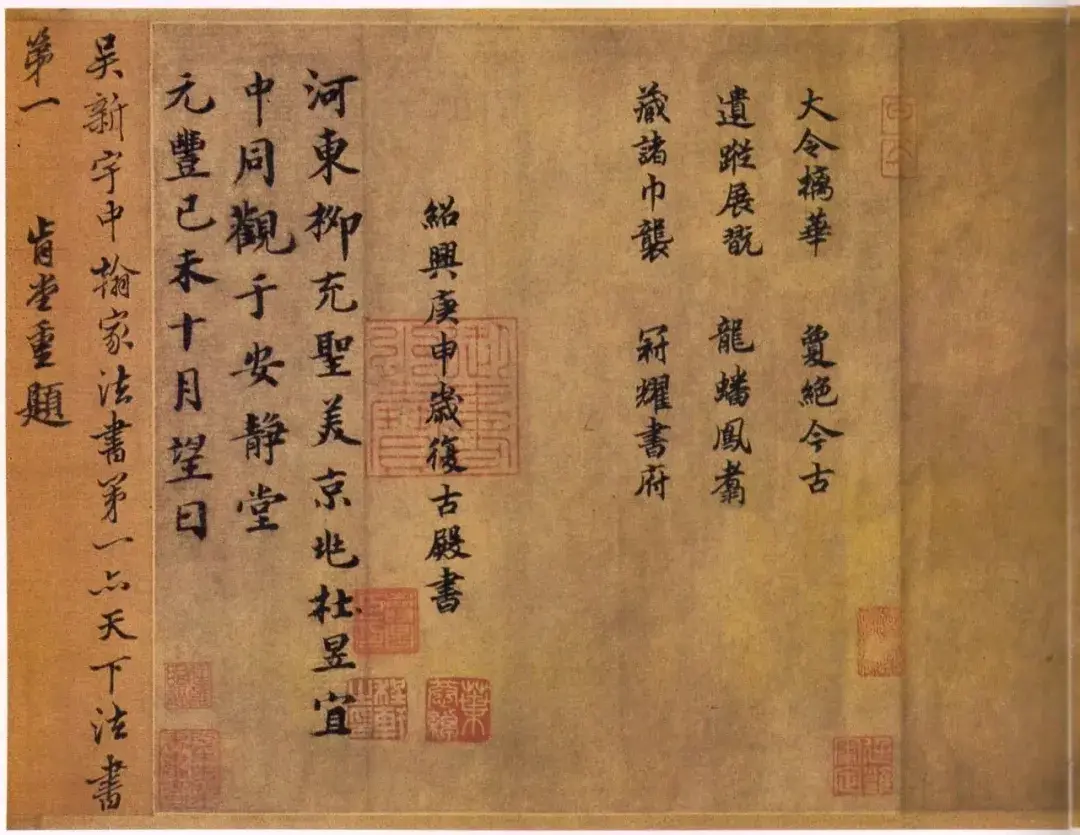 大令摛華 敻絶今古
遺蹤展翫 龍蟠鳳翥
藏諸巾襲 冠耀書府
紹興庚申歲復古殿書
河東柳充聖美京兆杜昱宜
中同觀于安靜堂
元豐己未十月望日
吳新宇中翰家法書第一亦天下法書
第一 肯堂重題